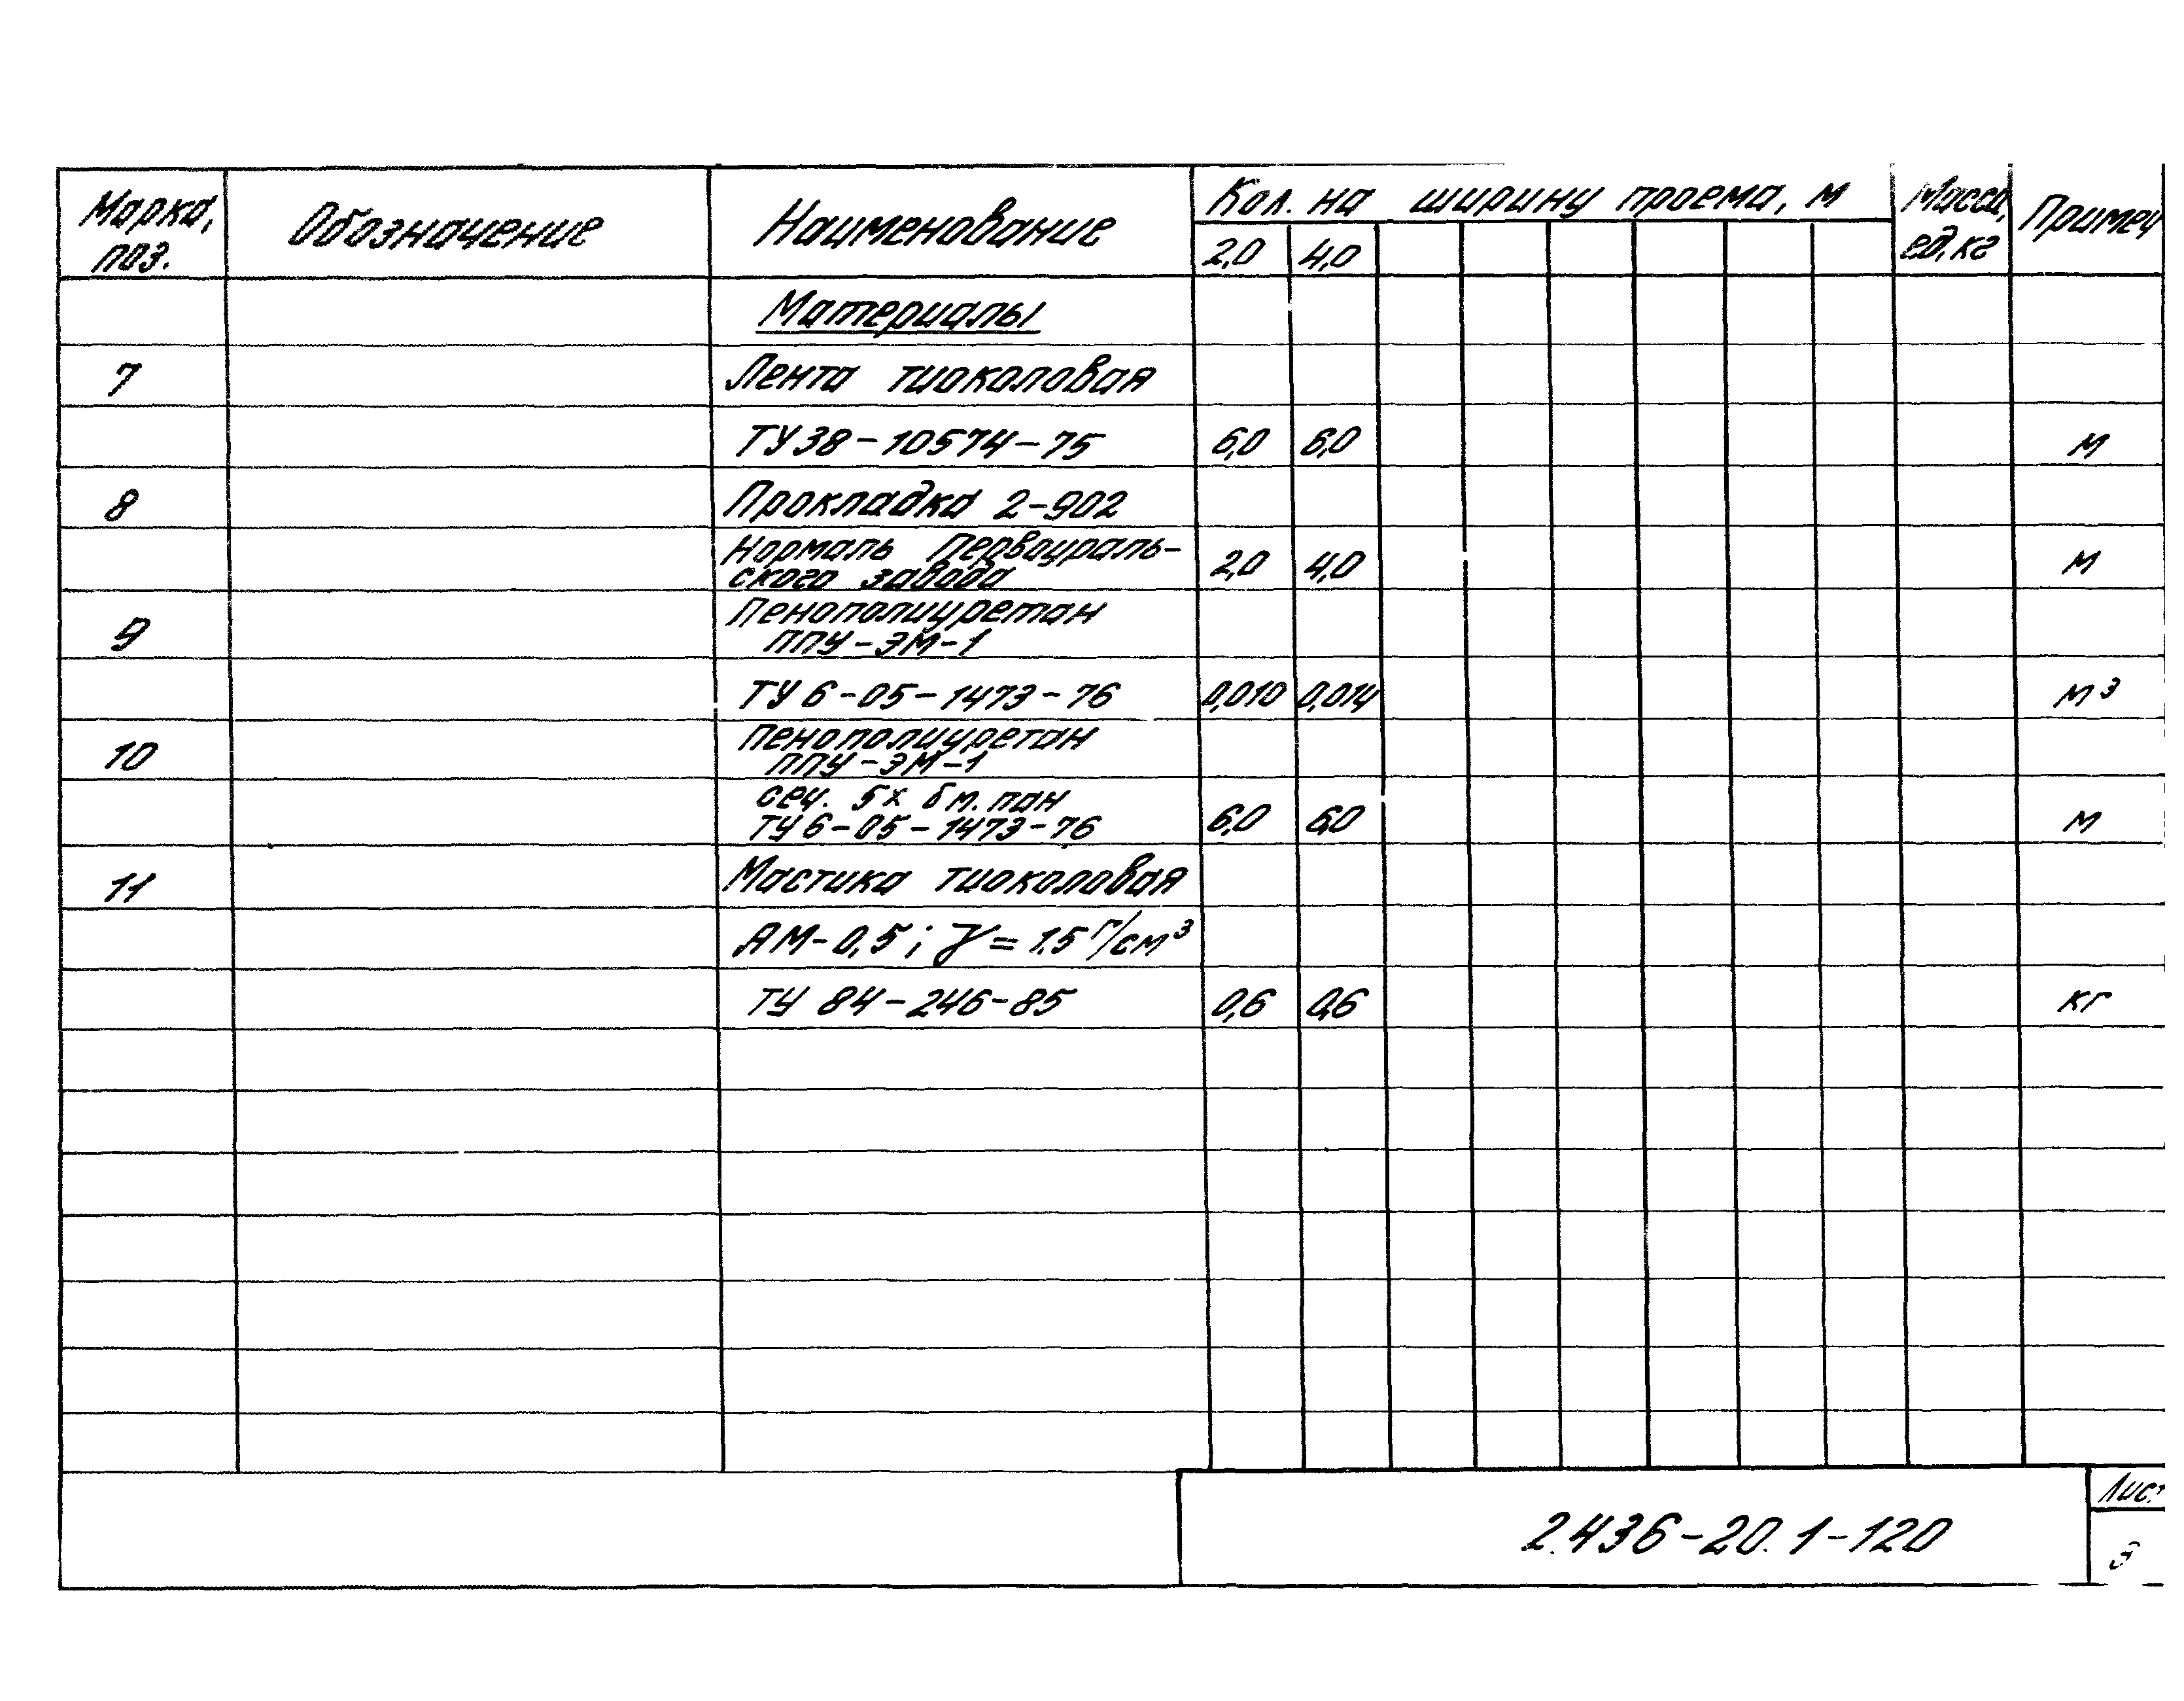 Марка, поз. Обозначение Наименование Кол. на ширину проема, м Масса, ед, кг Примеч
2,0 4,0
Материалы
7 Лента тиоколовая
ТУ 38-10574-75 6,0 6,0 м
8 Прокладка 2-902
Нормаль Первоураль-
ского завода 2,0 4,0 м
9 Пенополиуретан
ППУ-ЭМ-1
ТУ 6-05-1473-76 0,010 0,014 м³
10 Пенополиуретан
ППУ-ЭМ-1
сеч. 5х
ТУ 6-05-1473-76 6,0 6,0 м
11 Мастика тиоколовая
АМ-0,5; γ = 1.5 г/см³
ТУ 84-246-85 0,6 0,6 кг
2.436-20.1-120
Лист
3